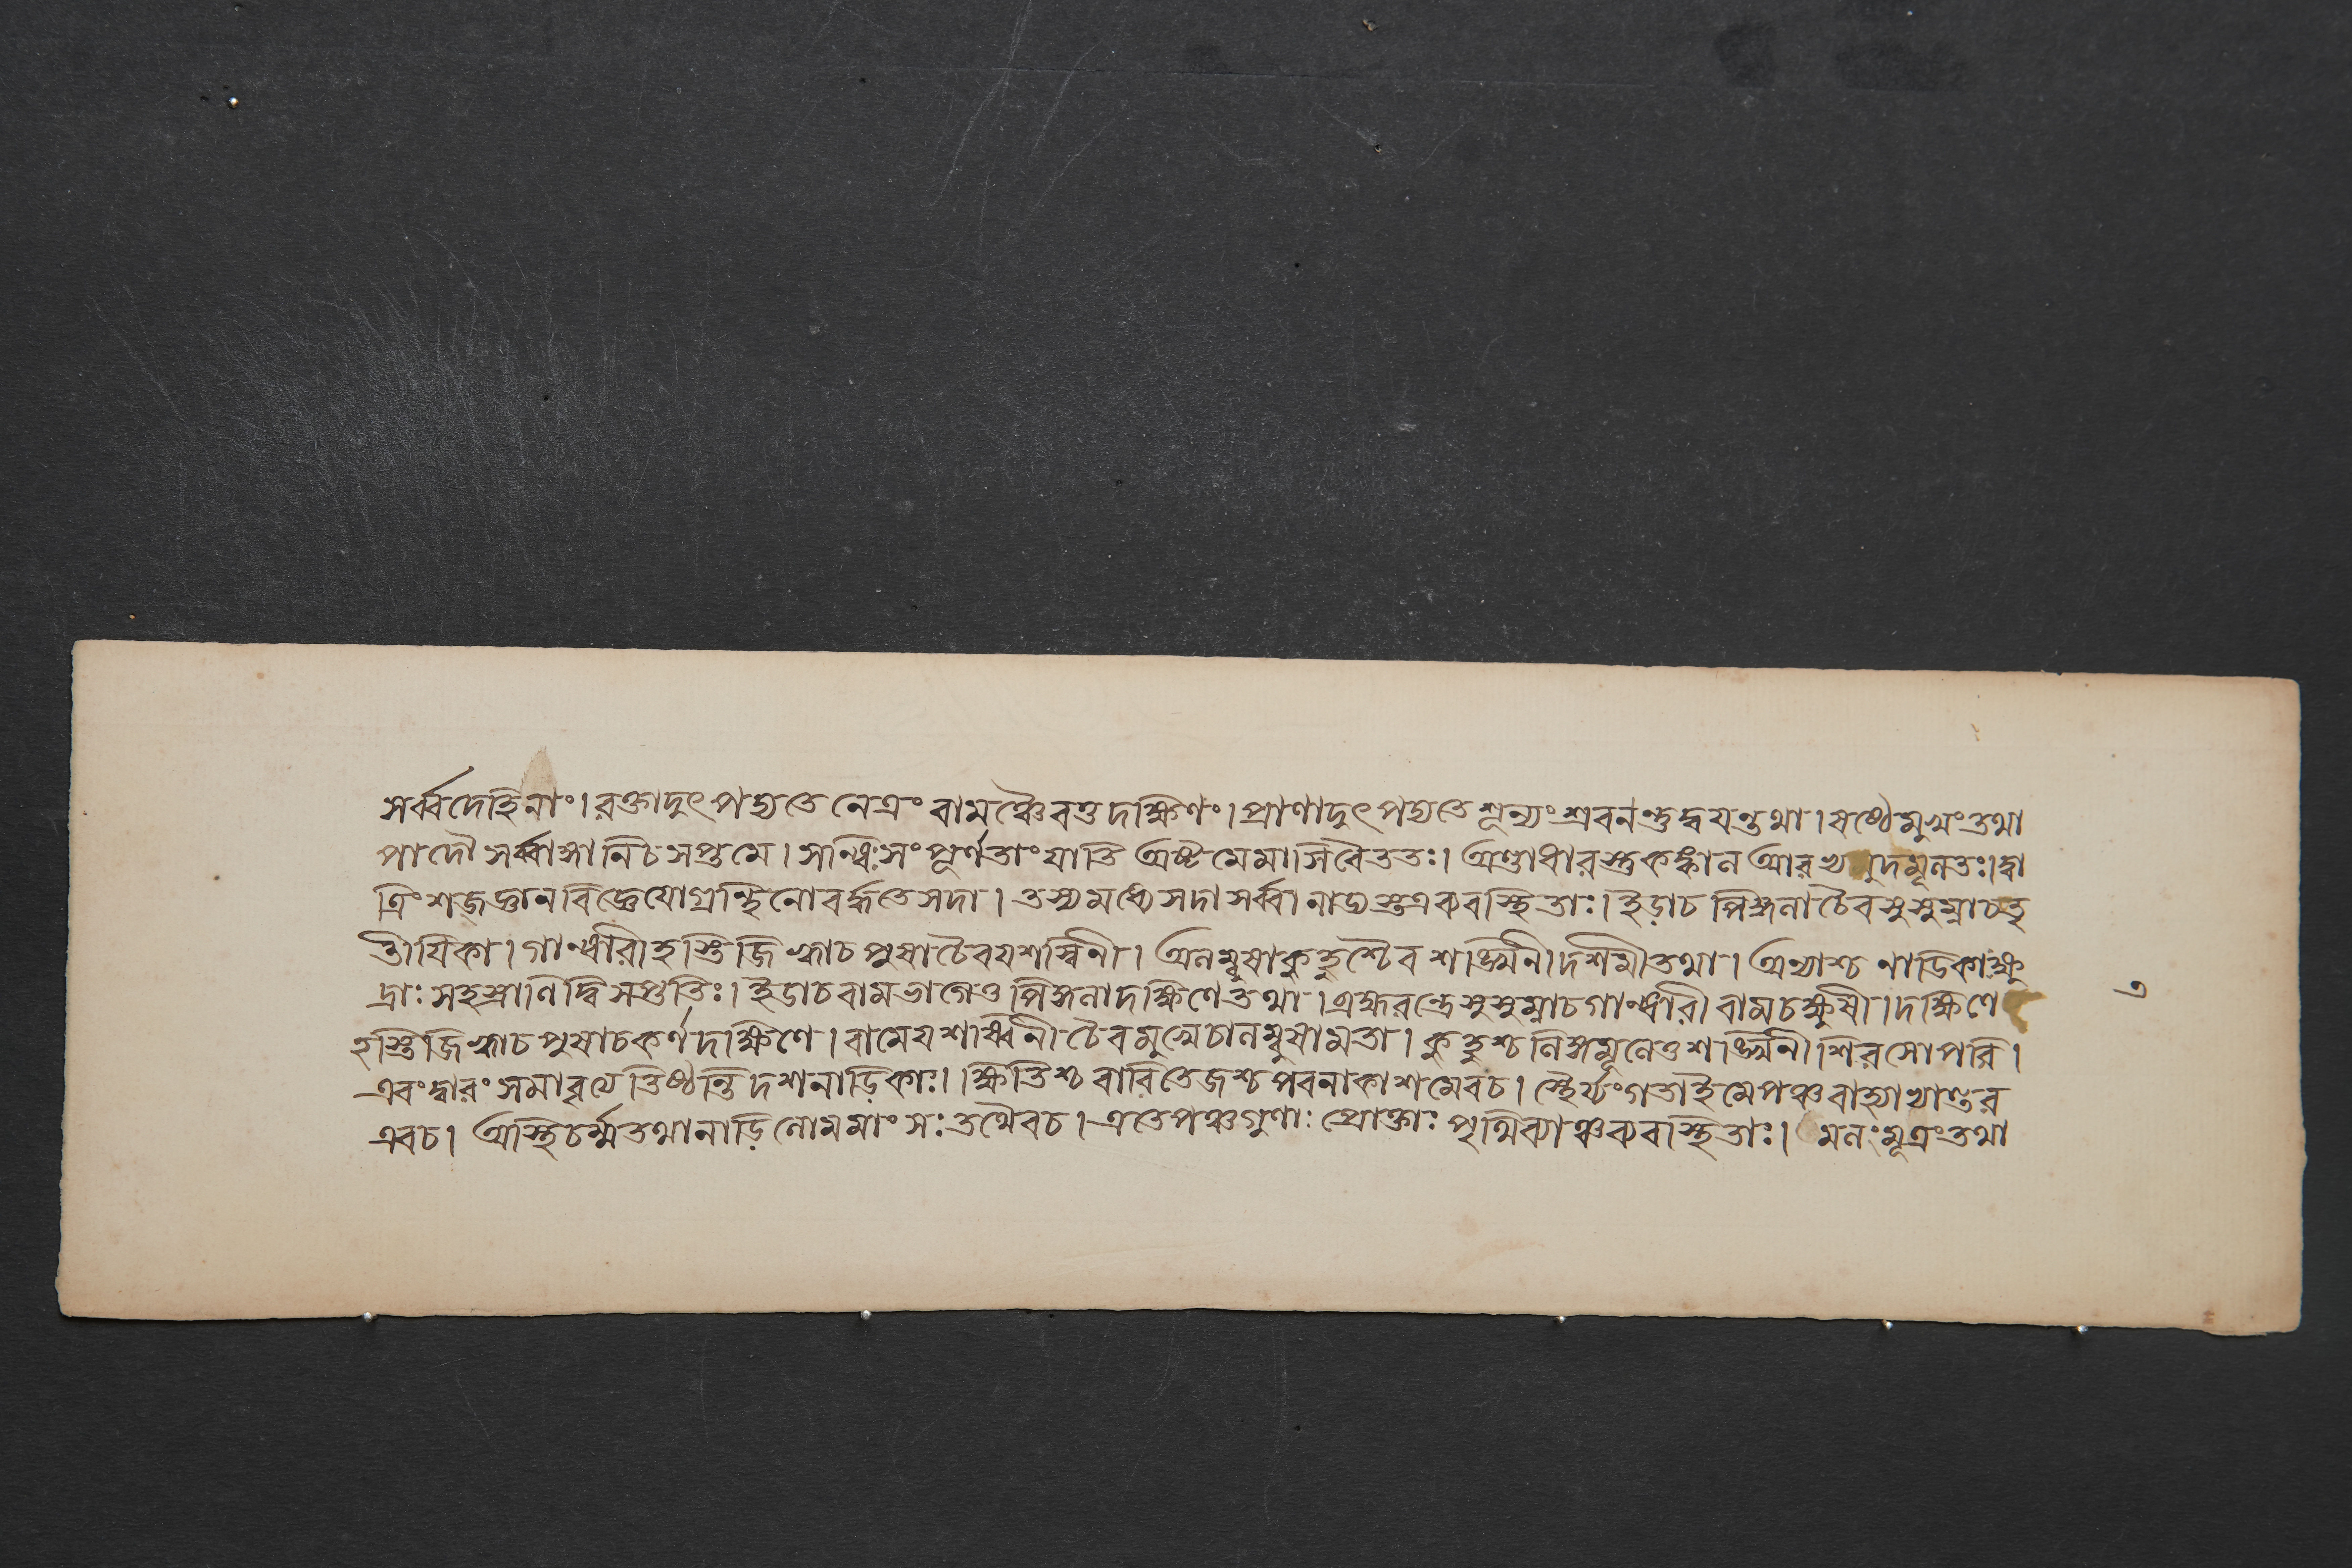 সর্ব্বদেহিনাং। রক্তাদুৎপদ্যতে নেত্রং বামঞ্চৈবতু দক্ষিণং। প্রাণাদুৎপদ্যতে শূন্যং শ্রবনন্তু দ্বয়ন্তথা। ষষ্ঠে মুখং তথা
পাদৌ সর্ব্বাঙ্গানি চ সপ্তমে। সন্ধিঃ সংপূর্ণতাং যাতি অষ্টমে মাসি বৈ ততঃ। অণ্ডাধারস্তু কঙ্কাল আরভ্য মূলতঃ। দ্বা
ত্রিংশজ্জ্ঞান বিজ্ঞেয়ো গ্রন্থিনো বর্দ্ধতে সদা। তস্য মধ্যে সদা সর্ব্বা নাড্যস্তু এব ব্যবস্থিতাঃ। ইড়া চ পিঙ্গলা চৈব সুসুম্না চ তৃ
তীয়িকা। গান্ধারী হস্তিজিহ্বা চ পুষা চৈব যশস্বিনী। অলম্বুষা কুহুশ্চৈব শঙ্খিনী দশমী তথা। অন্যাশ্চ নাড়িকাঃ ক্ষু
দ্রাঃ সহস্রাণি দ্বিসপ্ততিঃ। ইড়া চ বামভাগে তু পিঙ্গলা দক্ষিণে তথা। ব্রহ্মরন্ধ্রে সুসুম্না চ গান্ধারী বামচক্ষুষী। দক্ষিণে
হস্তিজিহ্বা চ পুষা চ কর্ণ দক্ষিণে। বামে যশস্বিনী চৈব মুখে চালম্বুষা মতা। কুহুশ্চ লিঙ্গমূলে তু শঙ্খিনী শিরসোপরি।
এবং দ্বারং সমাবৃত্যে তিষ্ঠন্তি দশ নাড়িকাঃ। ক্ষিতিশ্চ বারি তেজশ্চ পবনাকাশমেব চ। স্থৈর্য্যং গতা ইমে পঞ্চ বাহ্যাভ্যন্তর
এব চ। অস্থি চর্ম্ম তথা নাড়ি লোম মাংসঃ তথৈব চ। এতে পঞ্চগুণাঃ প্রোক্তাঃ পৃথিব্যাঞ্চ ব্যবস্থিতাঃ। মলং মূত্রং তথা
৩